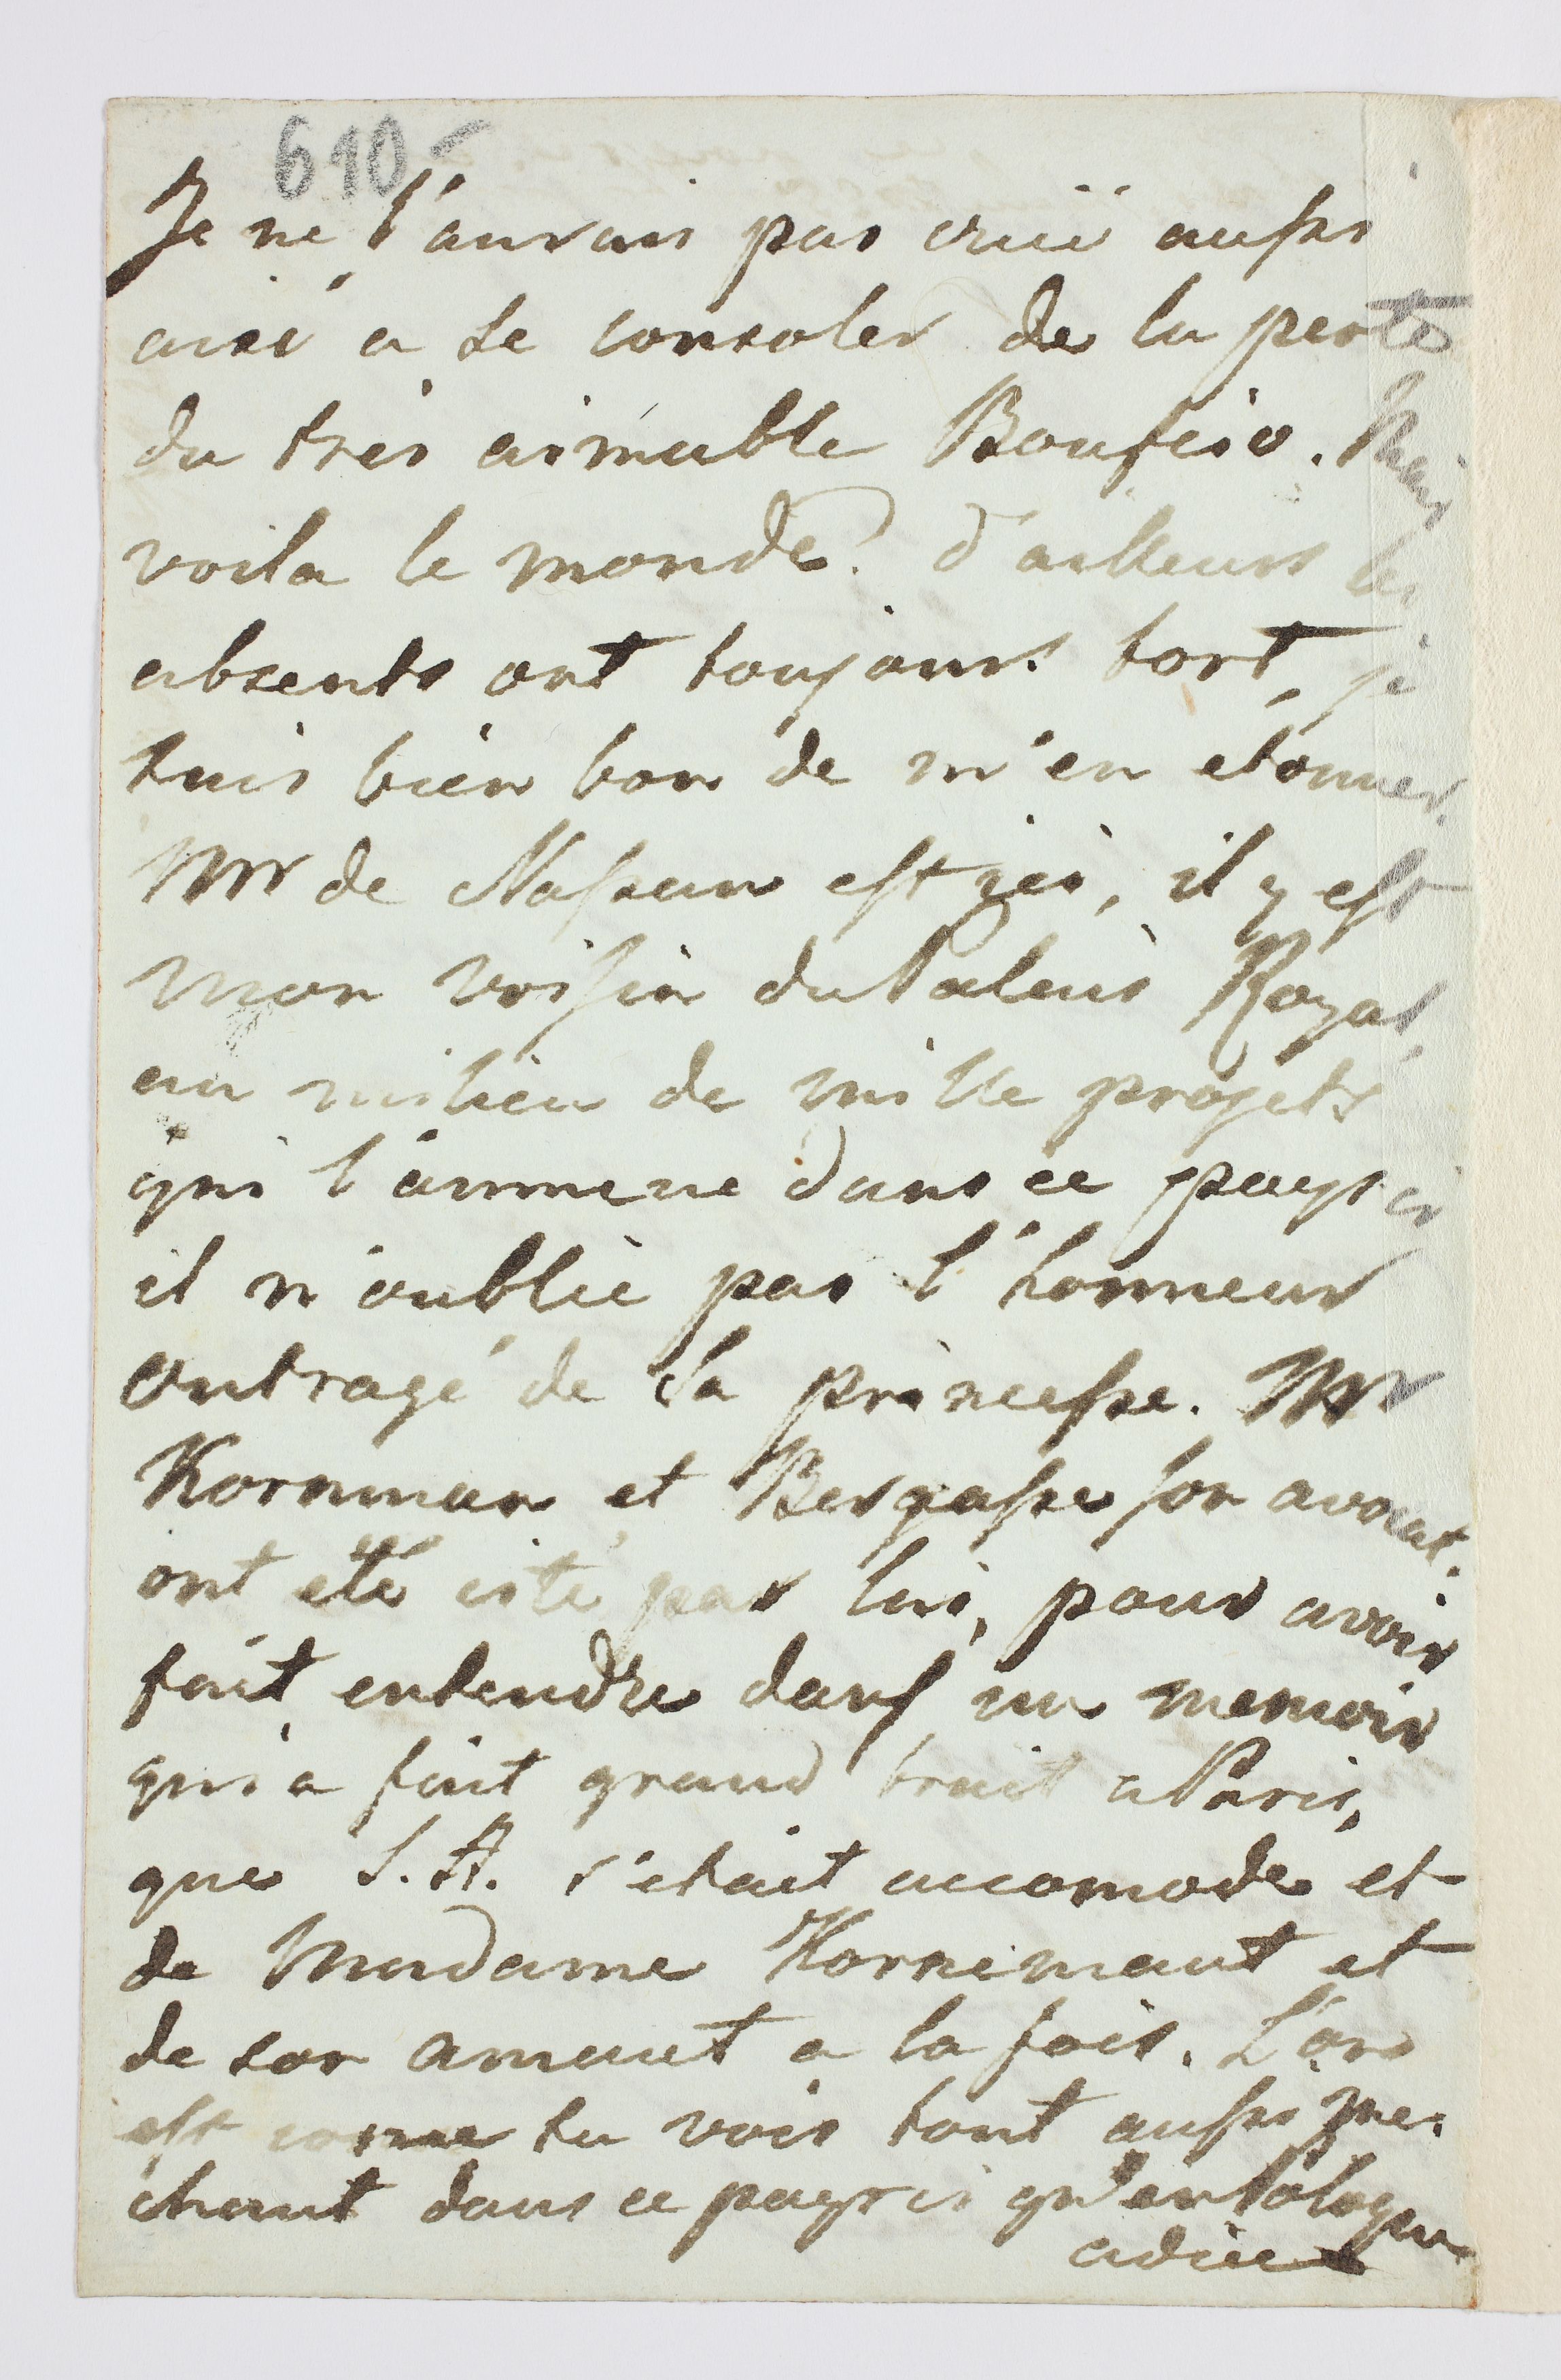 610
Je ne l'aurais pas crüe aussi
aisé a se consoler de la perte
du très aimable Mais
voila le monde! d'ailleurs les
absents ont toujours tort, je
suis bien bon de m'en etonner.
Mr de Nassau est ici, il y est
mon voisin du Palais Royal,
au milieu de mille projets
qui l'ammene dans ce pays ci
il n'oublie pas l'honneur
outragé de sa princesse. Mr
Kornman et Bergasse son avocat.
ont été cité par lui, pour avoir
fait entendre dans un memoir
qui a fait grand bruit a Paris,
que S. A. s'etait accomode et
de Madame Kornemant et
de son amant a la fois. L'on
est comme tu vois tout aussi me-
chant dans ce pays ci qu'en Pologne
adieu